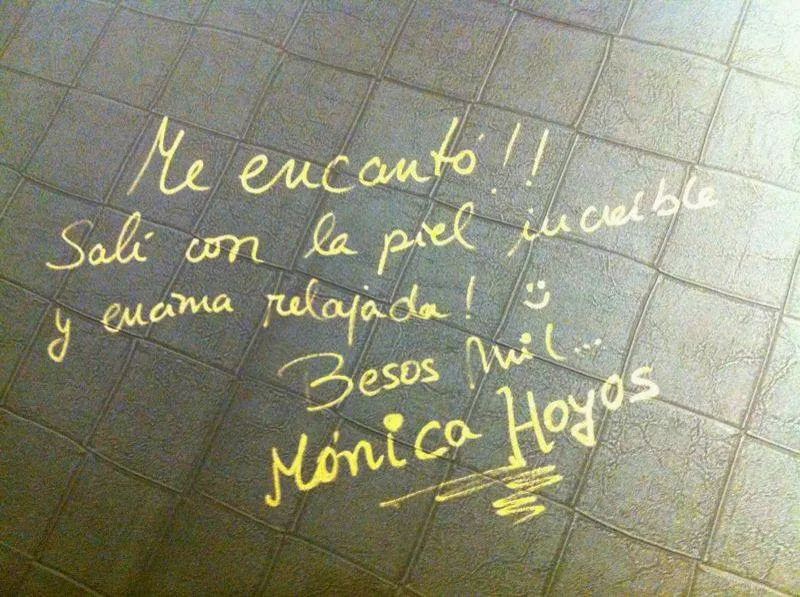 Me encantó!!
Salí con la piel increíble
y encima relajada! :)
Besos Mil...
Mónica Hoyos